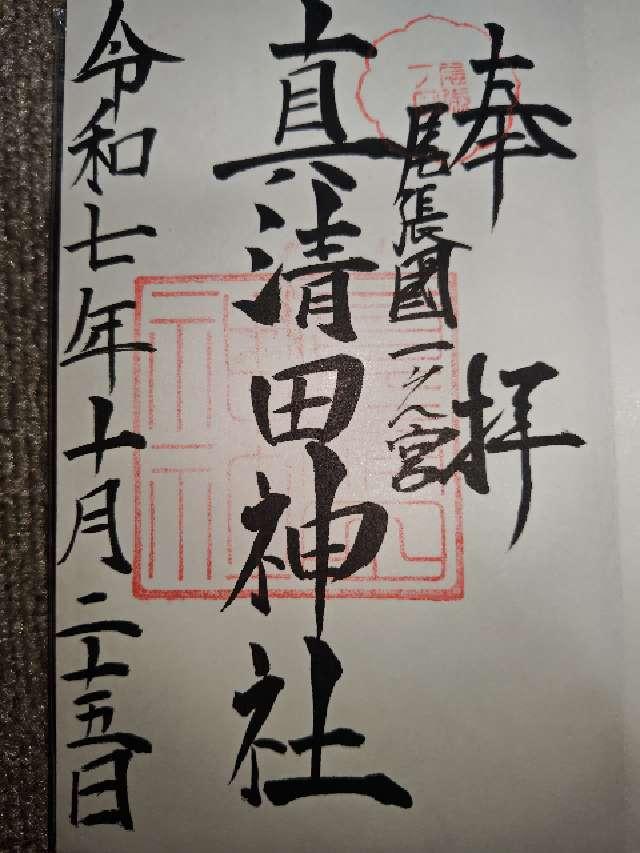 奉拝
尾張國一ノ宮
真清田神社
令和七年十月二十五日